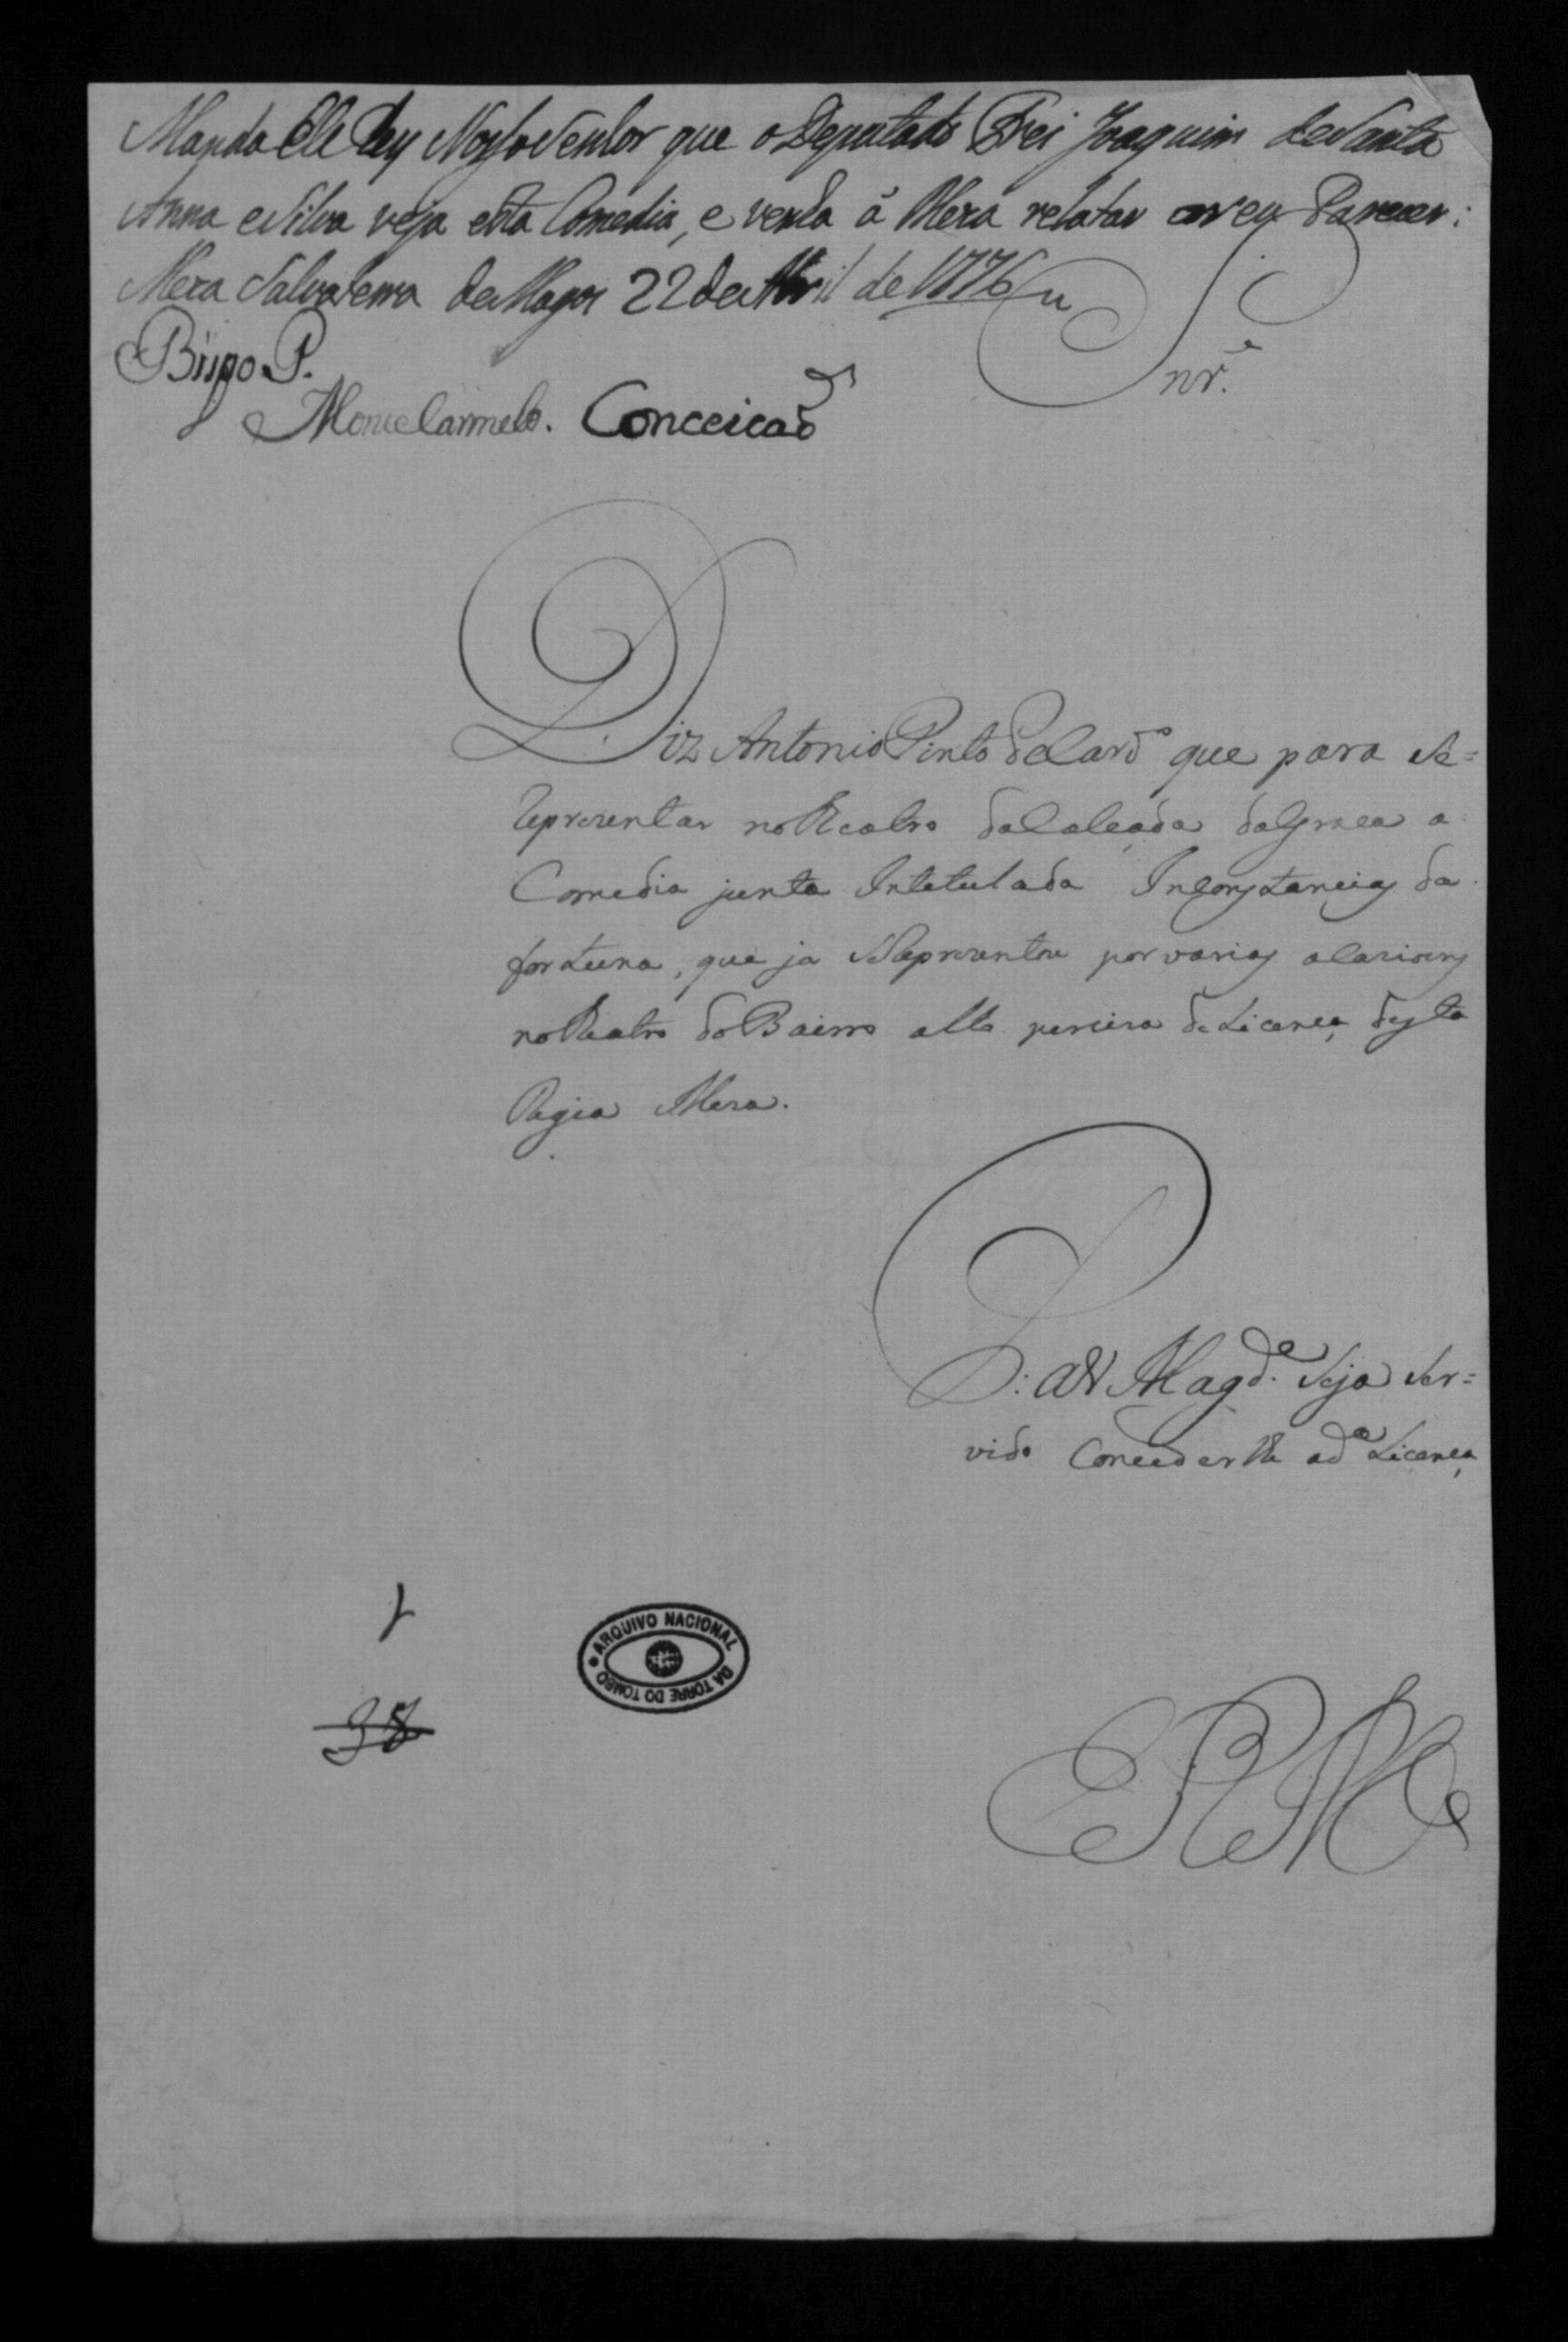 Manda Elle Rey Nosso Senhor que o Deputado Frei Joaquim de Santa
Anna e Silva veja esta Comedia, e venha á Meza relatar o seu Parecer:
Meza Salvaterra de Magos 22 de Abril de 1776
Snr.^e
Bispo P.
Monte Carmelo. Conceicaõ
Diz Antonio Pinto que para se=
representar no Theatro da Calçada da Graça a
Comedia junta Intetulada Inconstancias da
fortuna, que ja se Reprezentou por varias
no Theatro do Bairro alto perciza de Licença desta
Regia Meza.
P. a V Mag.^de Seja Ser=
vido Conceder lhe a d.^a Licença
1
38
ARQUIVO NACIONAL DA TORRE DO TOMBO
E R M^ce